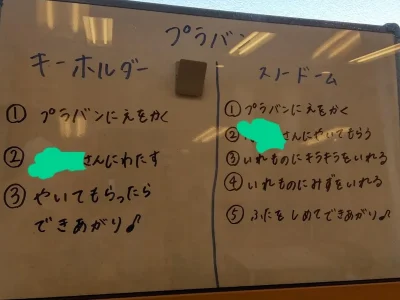 プラバン
キーホルダー
① プラバンにえをかく
② さんにわたす
③ やいてもらったら
できあがり♪
スノードーム
① プラバンにえをかく
② さんにやいてもらう
③ いれものにキラキラをいれる
④ いれものにみずをいれる
⑤ ふたをしめてできあがり♪